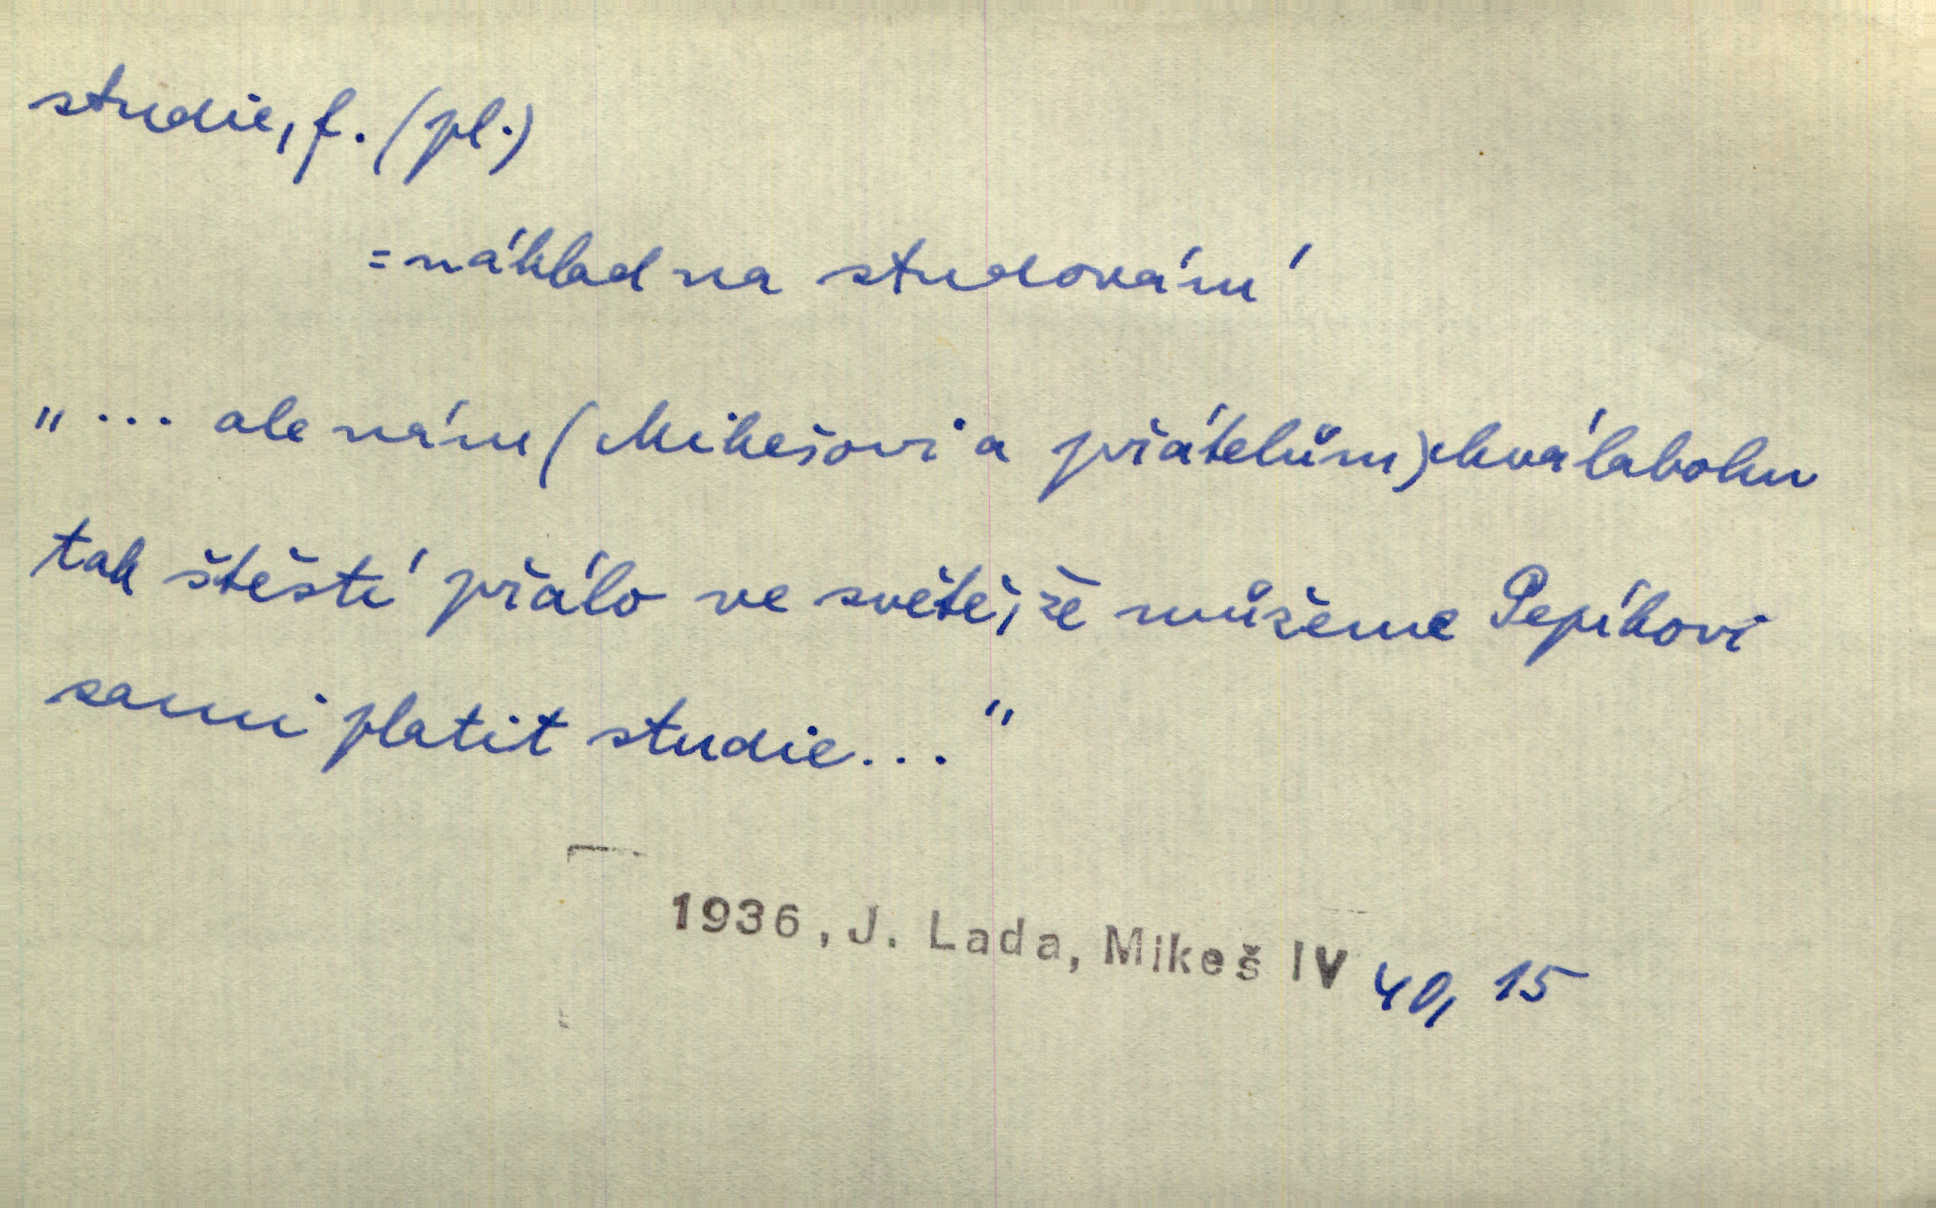 studie, f. (pl.)
= náklad na studování
„... ale nám (Mikešovi a přátelům) chválabohu
tak štěstí přálo ve světě, že můžeme Pepíkovi
sami platit studie..."
1936, J. Lada, Mikeš IV 40, 15